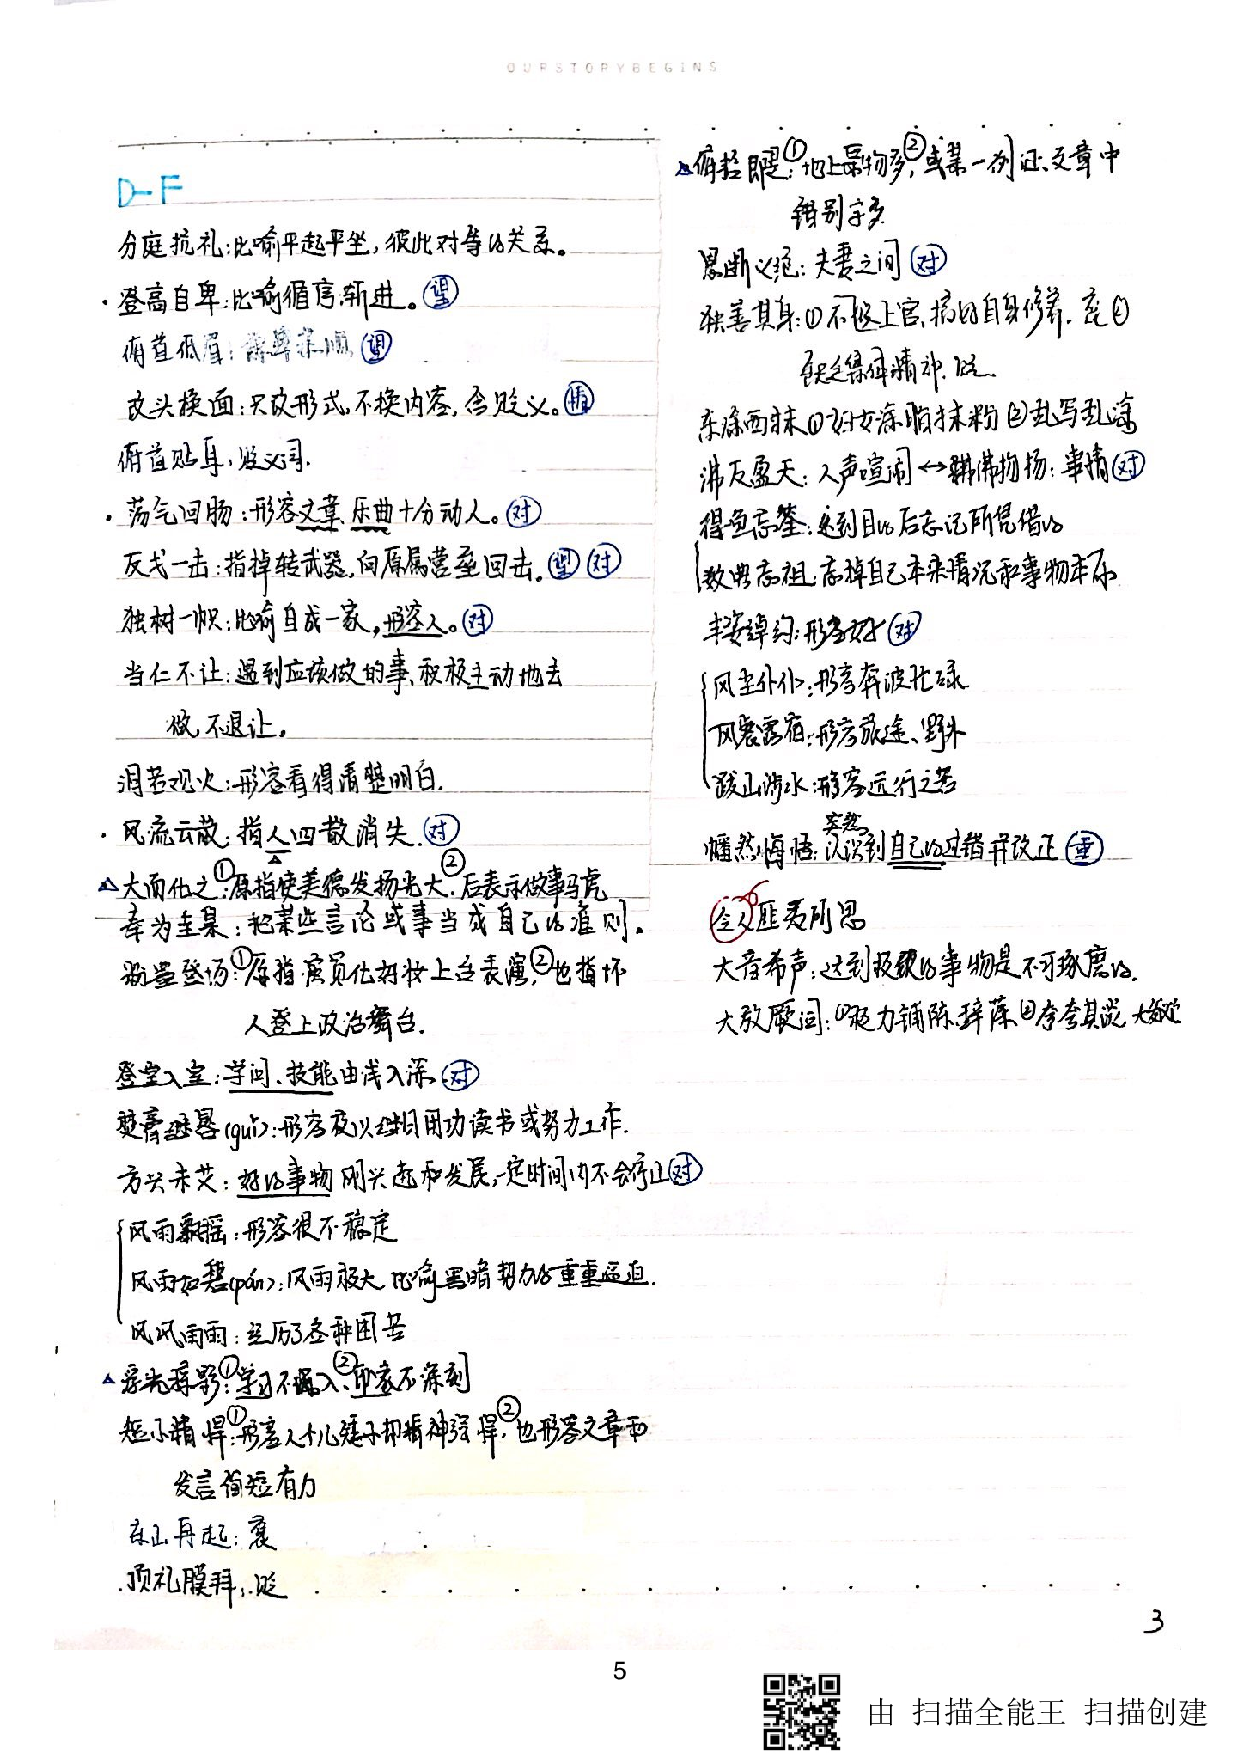 OURSTORYBEGINS
D-F
分庭抗礼:比喻平起平坐,彼此对等的关系。
登高自卑:比喻循序渐进。望
俯首低眉: 望
改头换面:只改形式,不换内容,含贬义。
俯首贴耳,贬义词.
荡气回肠:形容文章、乐曲十分动人。对
反戈一击:指掉转武器,向原属营垒回击。望 对
独树一帜:比喻自成一家,形容人。对
当仁不让:遇到应该做的事,积极主动地去
做,不退让。
洞若观火:形容看得清楚明白.
风流云散:指人四散消失.对
大而化之:①原指使美德发扬光大.②后表示做事马虎
奉为圭臬:把某些言论或事当成自己的准则.
粉墨登场:①原指演员化好妆上台表演,②也指坏
人登上政治舞台.
登堂入室:学问、技能由浅入深.对
焚膏继晷(guǐ):形容夜以继日用功读书或努力工作.
方兴未艾:好的事物刚兴起和发展,一定时间内不会停止对
风雨飘摇:形容很不稳定
风雨如磐(pán):风雨极大 比喻黑暗势力的重重压迫.
风风雨雨:经历了各种困苦
浮光掠影:①学习不深入、②印象不深刻
短小精悍:①形容人个儿矮小却精神强悍,②也形容文章和
发言简短有力
东山再起:褒
顶礼膜拜:贬
俯拾即是:①地上某物多,②或某一例证、文章中
错别字多
恩断义绝:夫妻之间 对
独善其身:①不做上官,搞好自身修养.褒②
缺乏集体精神.贬
东涂西抹①妇女涂脂抹粉②乱写乱涂
沸反盈天:人声喧闹↔沸沸扬扬:事情 对
得鱼忘筌:达到目的后忘记所凭借的
数典忘祖:忘掉自己本来情况和事物本质
丰姿绰约:形容女子 对
风尘仆仆:形容奔波忙碌
风餐露宿:形容旅途、野外
跋山涉水:形容远行之苦
突然
幡然悔悟:认识到自己的过错并改正 重
令人匪夷所思
大音希声:达到极致的事物是不可琢磨的.
大放厥词:①极力铺陈辞藻②夸夸其谈
3
5
由 扫描全能王 扫描创建